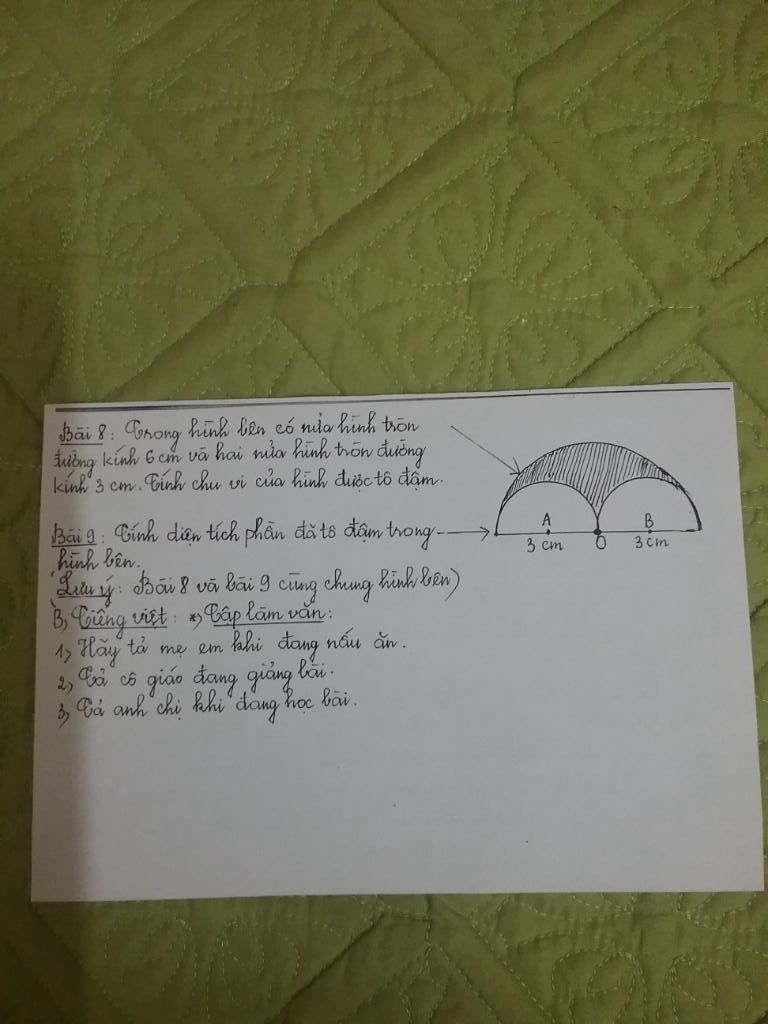 Bài 8: Trong hình bên có nửa hình tròn
đường kính 6 cm và hai nửa hình tròn đường
kính 3 cm. Tính chu vi của hình được tô đậm.
A
B
3 cm
O
3 cm
Bài 9: Tính diện tích phần đã tô đậm trong
hình bên.
(Lưu ý: Bài 8 và bài 9 cùng chung hình bên)
B, Tiếng việt: *, Tập làm văn:
1, Hãy tả mẹ em khi đang nấu ăn.
2, Tả cô giáo đang giảng bài.
3, Tả anh chị khi đang học bài.